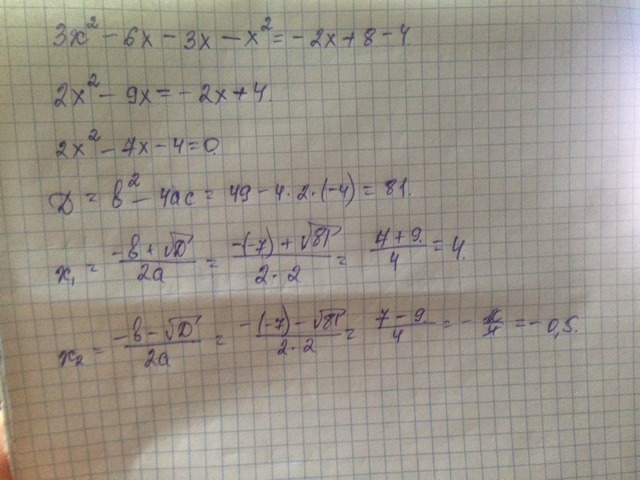 3x² - 6x - 3x - x² = - 2x + 8 - 4.
2x² - 9x = - 2x + 4.
2x² - 7x - 4 = 0.
D = b² - 4ac = 49 - 4 · 2 · (-4) = 81.
x₁ = (-b + √D) / 2a = (-(-7) + √81) / (2 · 2) = (7 + 9) / 4 = 4.
x₂ = (-b - √D) / 2a = (-(-7) - √81) / (2 · 2) = (7 - 9) / 4 = - 2/4 = - 0,5.